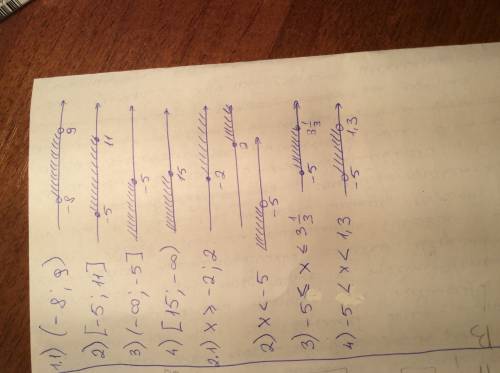 1.1) (-8; 9) -8 9
2) [-5; 11] -5 11
3) (-∞; -5] -5
4) [15; -∞) 15
2.1) x ⩾ -2; 2 -2 2
2) x < -5 -5
3) -5 ≤ x ≤ 3 1/3 -5 3 1/3
4) -5 < x < 1,3 -5 1,3